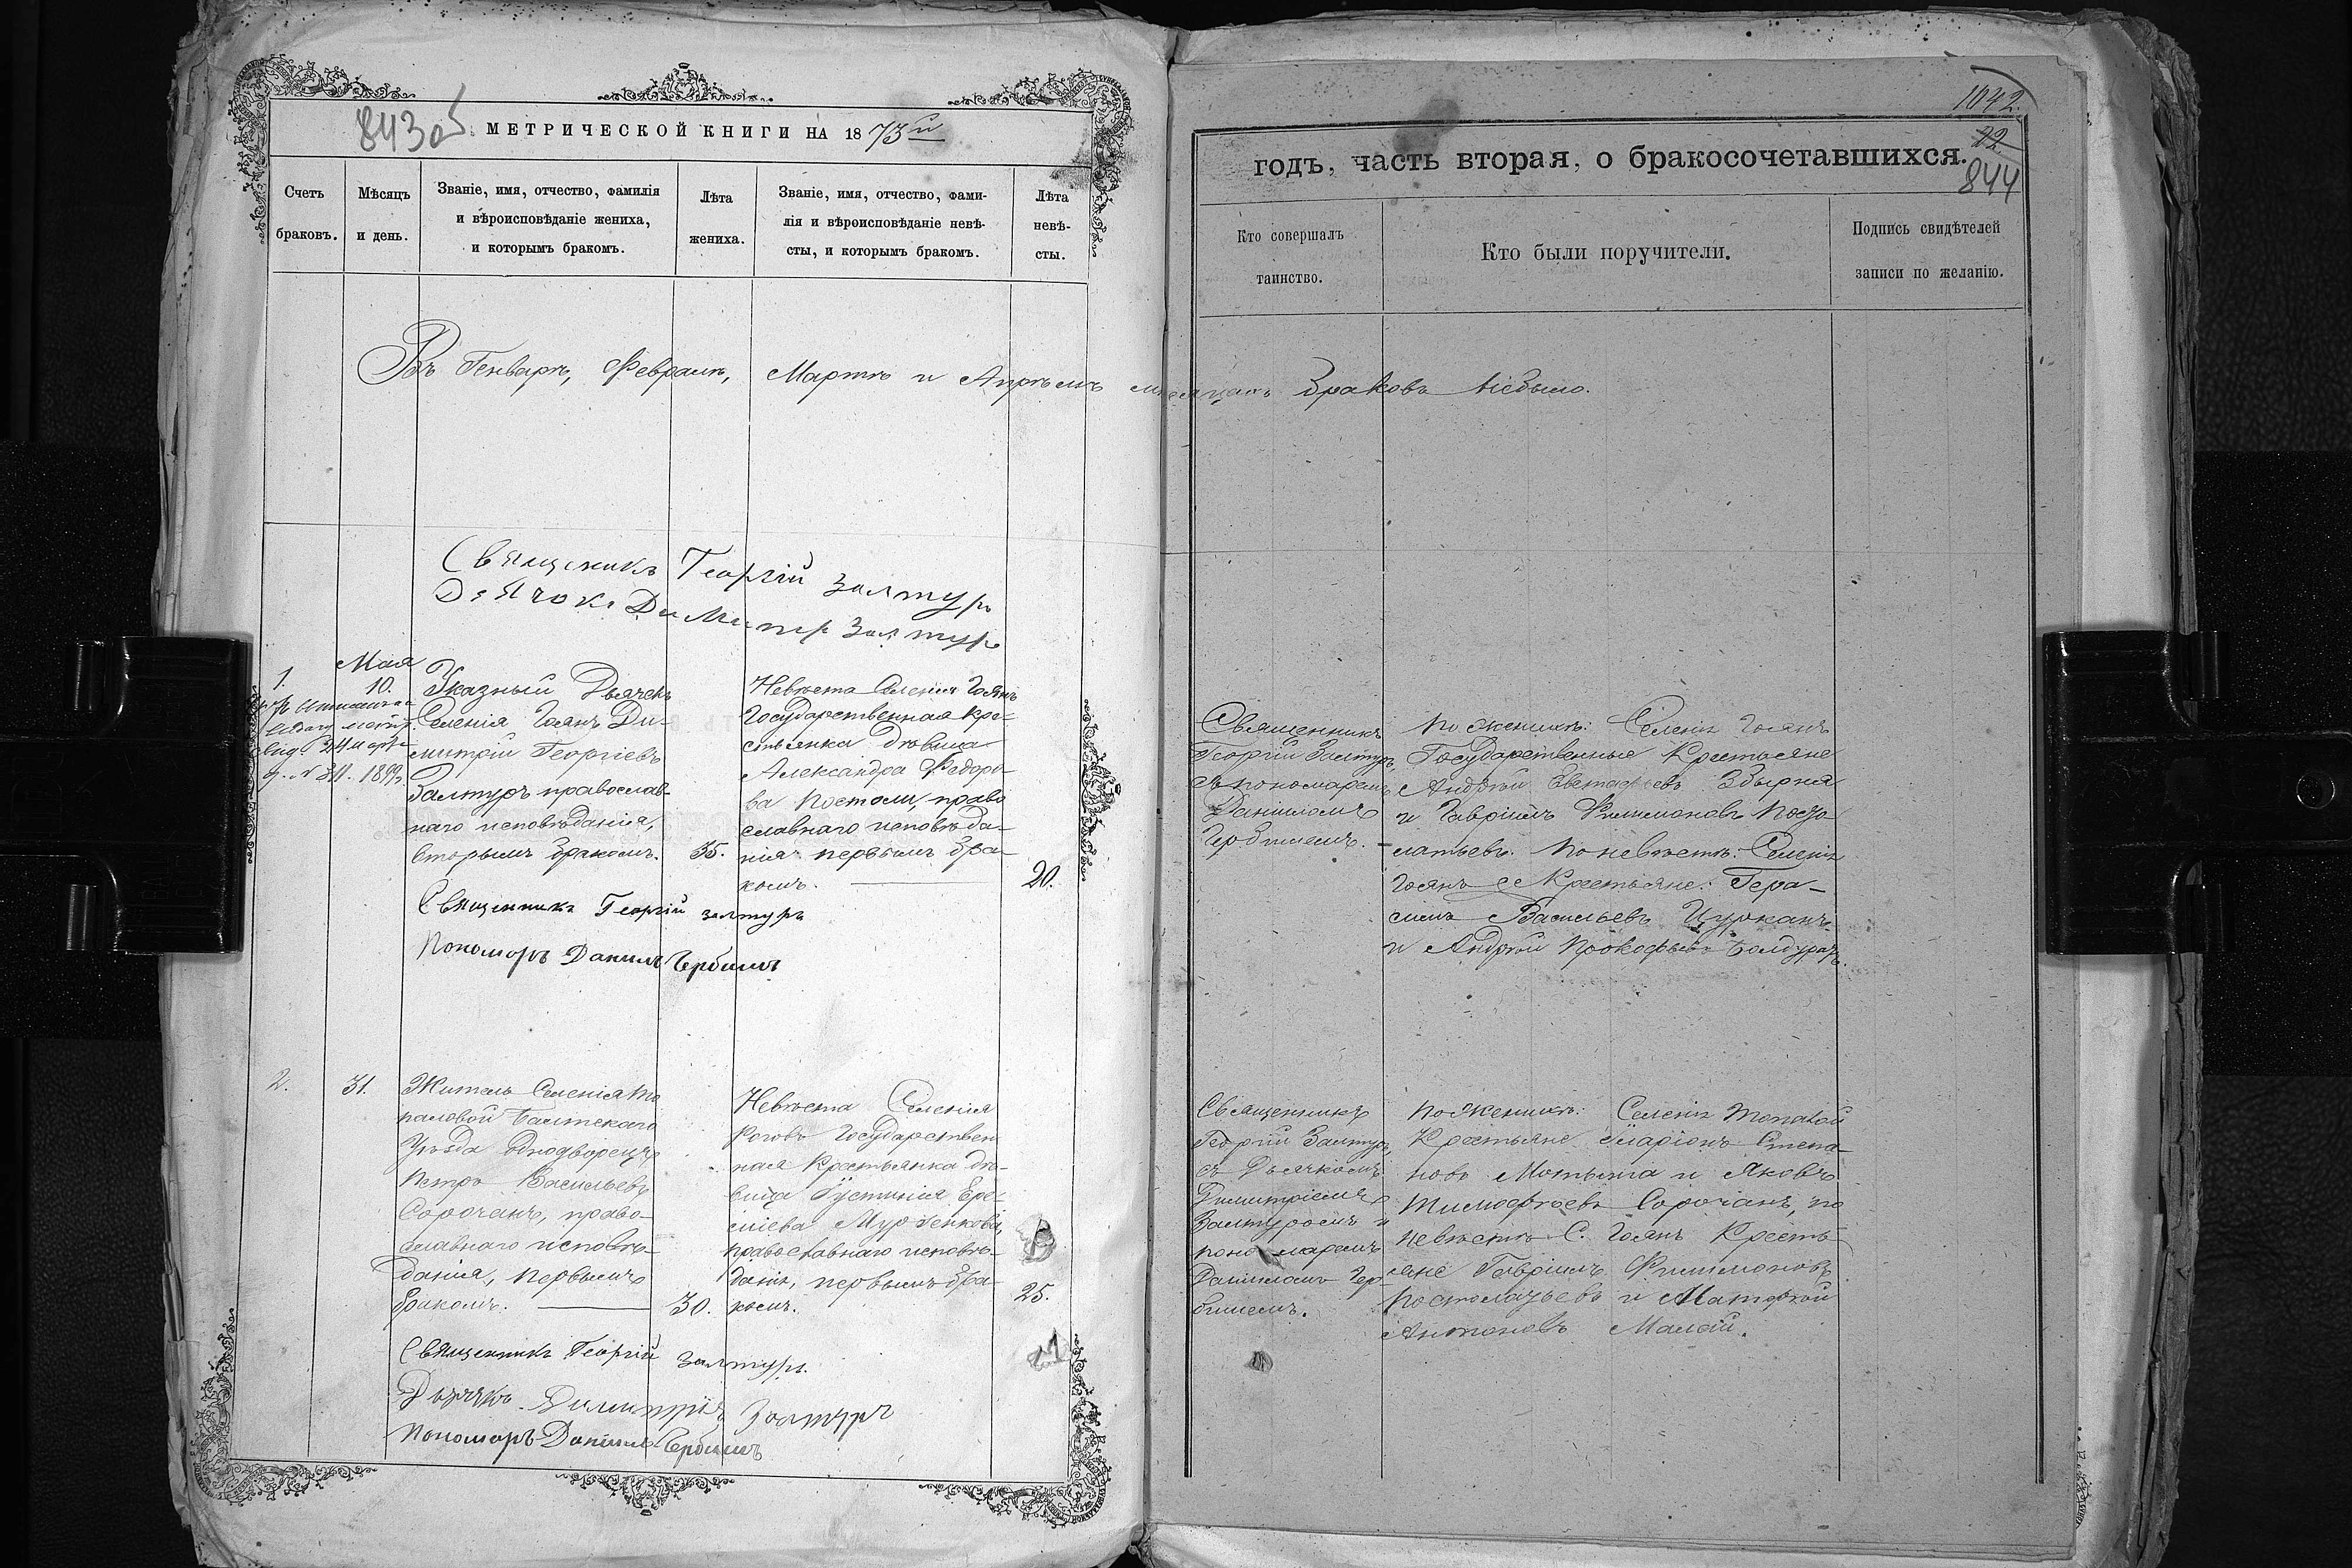 843об
МЕТРИЧЕСКОЙ КНИГИ НА 1873й
Счетъ браковъ.
Мѣсяцъ и день.
Званіе, имя, отчество, фамилія
и вѣроисповѣданіе жениха,
и которымъ бракомъ.
Лѣта жениха.
Званіе, имя, отчество, фами-
лія и вѣроисповѣданіе невѣ-
сты, и которымъ бракомъ.
Лѣта невѣ-
сты.
Въ Генварѣ, Февралѣ, Мартѣ и Апрѣлѣ мѣсяцахъ браковъ небыло.
Священикъ Георгій Залтуръ
Дьячокъ Димитр Залтуръ
1.
Мая
10.
Указный Дьячекъ
Селенія Гоянъ Ди-
митрій Георгіевъ
Залтуръ православ-
наго исповѣданія,
вторымъ бракомъ.
35.
Невѣста Селенія Гоянъ
Государственная кре-
стьянка дѣвица
Александра Федоро-
ва Постоли, право
славнаго исповѣда-
нія первымъ бра-
комъ.
20.
Священникъ Георгій Залтуръ
Пономоръ Данилъ Чербишъ
2.
31.
Житель Селенія То
паловой Балтскаго
Уѣзда Однодворецъ
Петръ Васильевъ
Сорочанъ, право-
славнаго исповѣ-
данія, первымъ
бракомъ.
30.
Невѣста Селенія
Роговъ Государствен
ная Крестьянка дѣ-
вица Густинія Ере-
міева Мурзенкова,
православнаго исповѣ-
данія, первымъ бра-
комъ.
25.
Священникъ Георгій Залтуръ.
Дьячкъ Димитрій Залтуръ
Пономоръ Даніилъ Чербишъ
1042.
22
844
годъ, часть вторая, о бракосочетавшихся.
Кто совершалъ
таинство.
Кто были поручители.
Подпись свидѣтелей
записи по желанію.
Священникъ
Георгій Залтуръ,
съ пономаремъ
Даніиломъ
Чербишемъ.
По женихѣ: Селенія Гоянъ
Государственные Крестьяне
Андрей Евстафіевъ Збырня
и Гавріилъ Филимоновъ Посто-
латьевъ. По невѣстѣ: Селенія
Гоянъ Крестьяне: Гера-
симъ Васильевъ Цурканъ
и Андрей Прокофьевъ Болдуратъ.
Священникъ
Георгій Залтуръ,
съ Дьячкомъ
Димитріемъ
Залтуромъ и
пономаремъ
Даніиломъ Чер-
бишемъ.
По Женихѣ: Селенія Топалой
Крестьяне Иларіонъ Степа-
новъ Мотынга и Яковъ
Тимофѣевъ Сорочанъ, по
невѣстѣ С. Гоянъ Кресть-
яне Гавріилъ Филимоновъ
Постолатьевъ и Матфей
Антоновъ Малай.